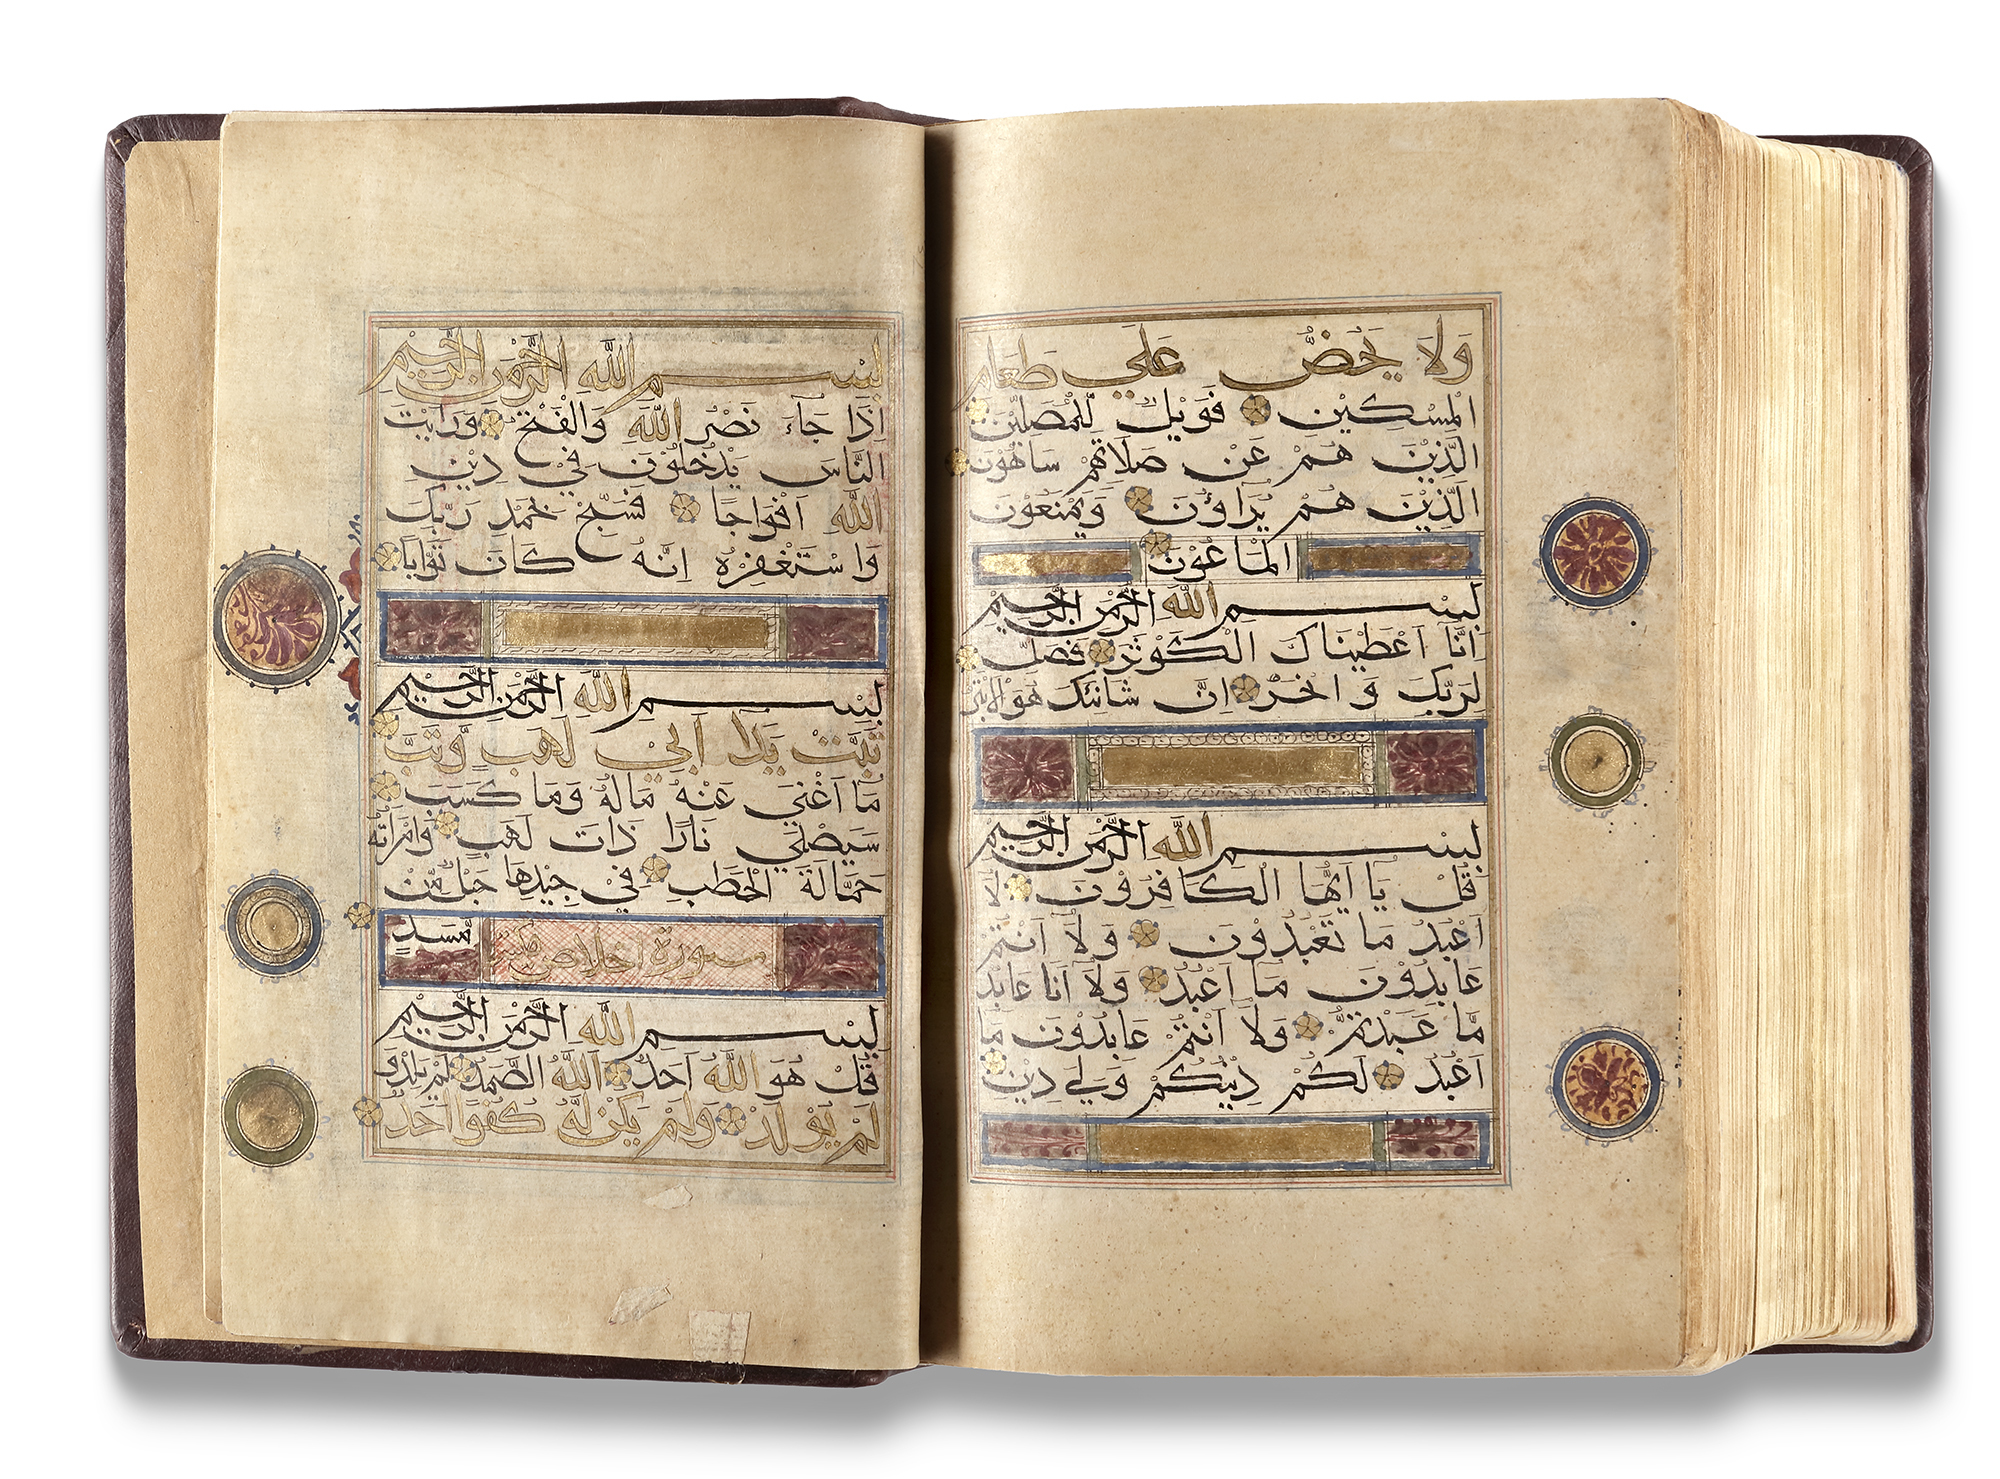 وَلَا يَحُضُّ عَلَى طَعَامِ
الْمِسْكِيْنِ فَوَيْلٌ لِلْمُصَلِّيْنَ
الَّذِيْنَ هُمْ عَنْ صَلَاتِهِمْ سَاهُوْنَ
الَّذِيْنَ هُمْ يُرَاؤُنَ وَيَمْنَعُوْنَ
الْمَاعُوْنَ
بِسْمِ اللَّهِ الرَّحْمَنِ الرَّحِيْمِ
اِنَّا اَعْطَيْنَاكَ الْكَوْثَرَ فَصَلِّ
لِرَبِّكَ وَانْحَرْ اِنَّ شَانِئَكَ هُوَ الْاَبْتَرُ
بِسْمِ اللَّهِ الرَّحْمَنِ الرَّحِيْمِ
قُلْ يَا اَيُّهَا الْكَافِرُوْنَ لَا
اَعْبُدُ مَا تَعْبُدُوْنَ وَلَا اَنْتُمْ
عَابِدُوْنَ مَا اَعْبُدُ وَلَا اَنَا عَابِدٌ
مَا عَبَدْتُمْ وَلَا اَنْتُمْ عَابِدُوْنَ مَا
اَعْبُدُ لَكُمْ دِيْنُكُمْ وَلِيَ دِيْنِ
بِسْمِ اللَّهِ الرَّحْمَنِ الرَّحِيْمِ
اِذَا جَاءَ نَصْرُ اللَّهِ وَالْفَتْحُ وَرَاَيْتَ
النَّاسَ يَدْخُلُوْنَ فِيْ دِيْنِ
اللَّهِ اَفْوَاجًا فَسَبِّحْ بِحَمْدِ رَبِّكَ
وَاسْتَغْفِرْهُ اِنَّهُ كَانَ تَوَّابًا
بِسْمِ اللَّهِ الرَّحْمَنِ الرَّحِيْمِ
تَبَّتْ يَدَا اَبِيْ لَهَبٍ وَتَبَّ
مَا اَغْنَى عَنْهُ مَالُهُ وَمَا كَسَبَ
سَيَصْلَى نَارًا ذَاتَ لَهَبٍ وَامْرَاَتُهُ
حَمَّالَةَ الْحَطَبِ فِيْ جِيْدِهَا حَبْلٌ مِّنْ
مَّسَدٍ
سورة اخلاص مكية
بِسْمِ اللَّهِ الرَّحْمَنِ الرَّحِيْمِ
قُلْ هُوَ اللَّهُ اَحَدٌ اَللَّهُ الصَّمَدُ لَمْ يَلِدْ وَ
لَمْ يُوْلَدْ وَلَمْ يَكُنْ لَهُ كُفُوًا اَحَدٌ